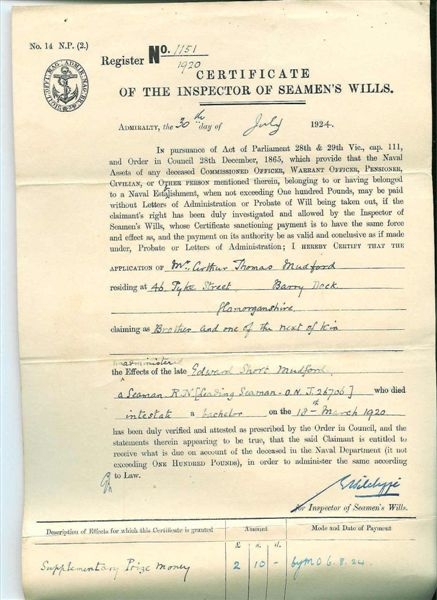 No. 14 N.P. (2.)
Register No. 1151
1920
CERTIFICATE
OF THE INSPECTOR OF SEAMEN'S WILLS.
ADMIRALTY, the 30th day of July 1924.
IN pursuance of Act of Parliament 28th & 29th Vic., cap. 111,
and Order in Council 28th December, 1865, which provide that the Naval
Assets of any deceased COMMISSIONED OFFICER, WARRANT OFFICER, PENSIONER,
CIVILIAN, or OTHER PERSON mentioned therein, belonging to or having belonged
to a Naval Establishment, when not exceeding One Hundred Pounds, may be paid
without Letters of Administration or Probate of Will being taken out, if the
claimant's right has been duly investigated and allowed by the Inspector of
Seamen's Wills, whose Certificate sanctioning payment is to have the same force
and effect as, and the payment on its authority be as valid and conclusive as if made
under, Probate or Letters of Administration; I HEREBY CERTIFY THAT THE
APPLICATION OF Mr. Arthur Thomas Mudford
residing at 46 Pyke Street, Barry Dock
Glamorganshire,
claiming as Brother and one of the next of kin
unadministered
the Effects of the late Edward Short Mudford,
a Seaman R.N. [Leading Seaman - O.N. J. 26706] who died
intestate a bachelor on the 18th March 1920
has been duly verified and attested as prescribed by the Order in Council, and the
statements therein appearing to be true, that the said Claimant is entitled to
receive what is due on account of the deceased in the Naval Department (it not
exceeding ONE HUNDRED POUNDS), in order to administer the same according
to Law.
for Inspector of Seamen's Wills.
Description of Effects for which this Certificate is granted Amount Mode and Date of Payment
£ s. d.
Supplementary Prize Money 2 10 - by M.O 6.8.24.